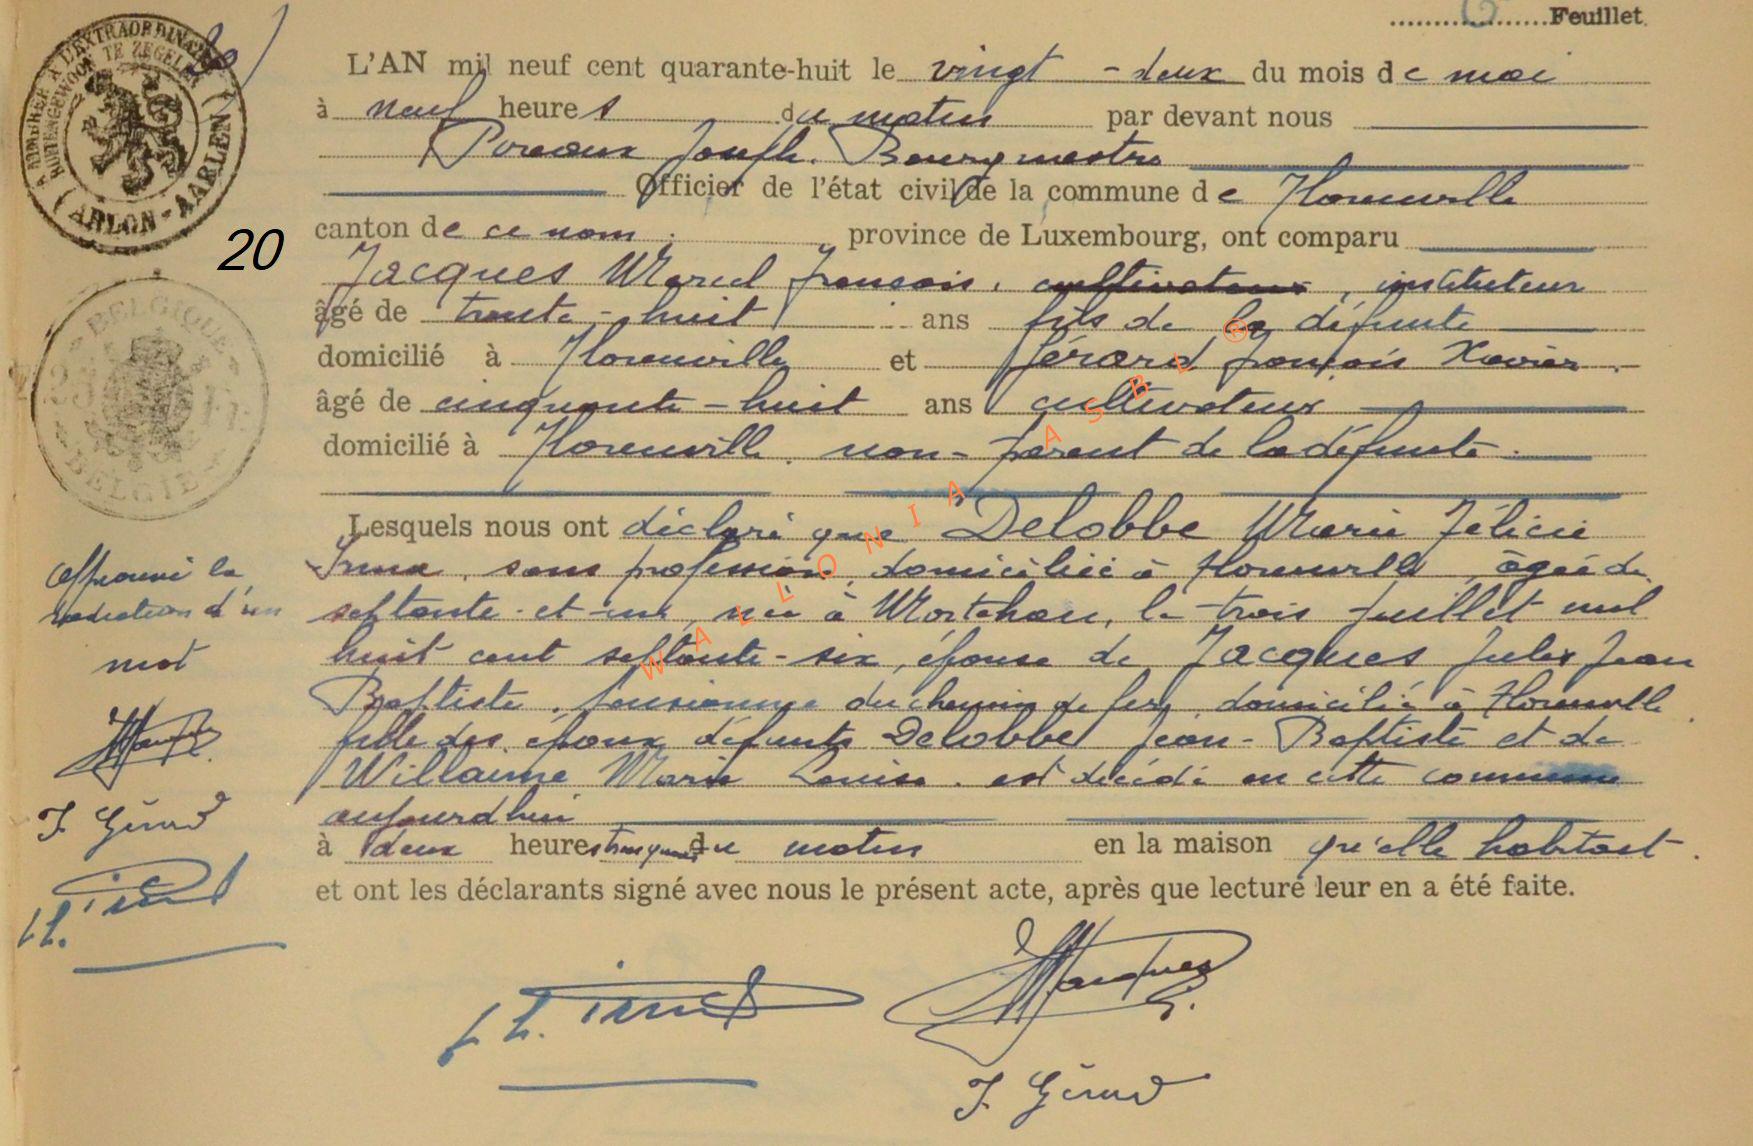 Feuillet
20
L'AN mil neuf cent quarante-huit le vingt - deux du mois de mai
à neuf heures du matin par devant nous
Joseph. Bourgmestre
Officier de l'état civil de la commune de Florenville
canton de ce nom. province de Luxembourg, ont comparu
Jacques Marcel François, cultivateur, instituteur
âgé de trente-huit ans fils de la défunte
domicilié à Florenville et Gérard François Xavier
âgé de cinquante-huit ans cultivateur
domicilié à Florenville. non-parent de la défunte.
Lesquels nous ont déclaré que Delobbe Marie Félicie
Irma, sans profession, domiciliée à Florenville âgée de
septante-et-un, née à Mortehan, le trois juillet mil
huit cent septante-six, épouse de Jacques Jules Jean
Baptiste, pensionné du chemin de fer, domicilié à Florenville
fille des époux défunts Delobbe Jean-Baptiste et de
Willaume Marie Louise. est décédé en cette commune
aujourd'hui
à deux heures du matin en la maison qu'elle habitait.
et ont les déclarants signé avec nous le présent acte, après que lecture leur en a été faite.
Approuvé la
radiation d'un
mot
J. Gérard
J. Gérard
A TIMBRER A L'EXTRAORDINAIRE
BUITENGEWOON TE ZEGELEN
(ARLON-AARLEN)
BELGIQUE
BELGIË
WALLONIA ASBL ®